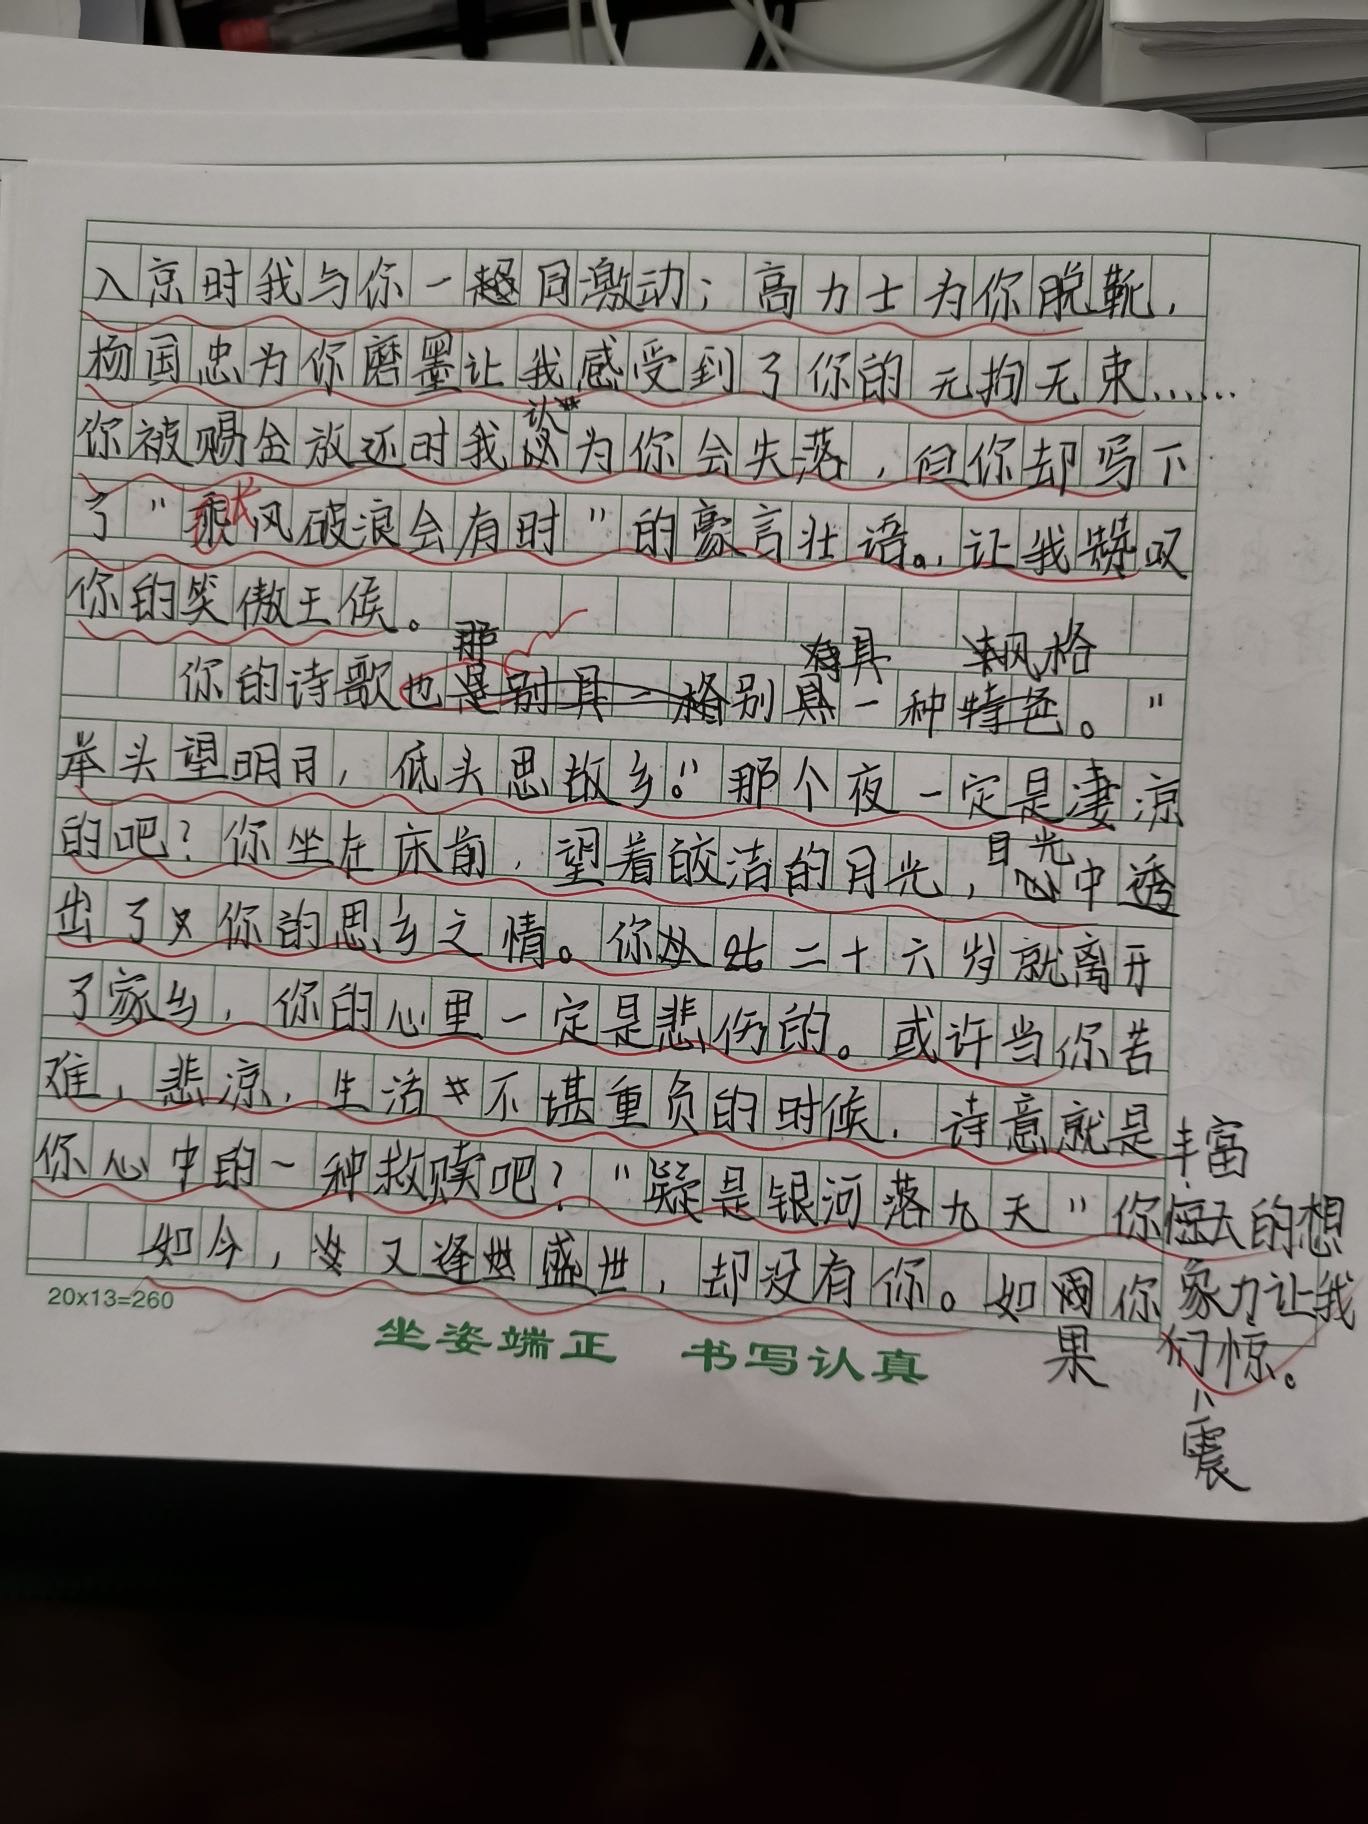 入京时我与你一同激动；高力士为你脱靴，
杨国忠为你磨墨让我感受到了你的无拘无束……
你被赐金放还时我认为你会失落，但你却写下
了"长风破浪会有时"的豪言壮语。，让我赞叹
你的笑傲王侯。
你的诗歌也那别具一种风格。"
举头望明月，低头思故乡。"那个夜一定是凄凉
的吧？你坐在床前，望着皎洁的月光，目光中透
出了你的思乡之情。你二十六岁就离开
了家乡，你的心里一定是悲伤的。或许当你苦
难，悲凉，生活不堪重负的时候，诗意就是
你心中的一种救赎吧？"疑是银河落九天"你丰富的想
象力让我
们震惊。
如今，又逢盛世，却没有你。如果你
20x13=260
坐姿端正 书写认真